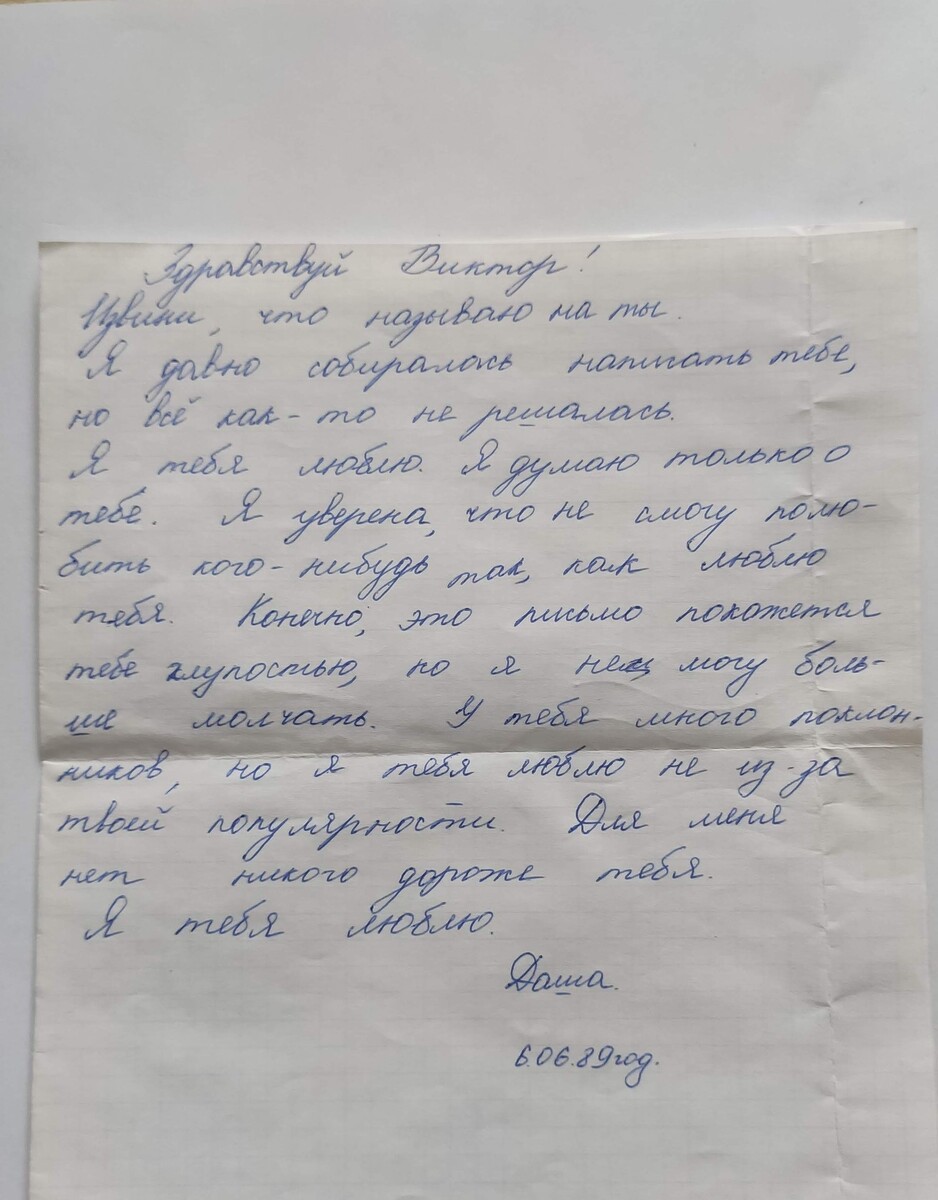 Здравствуй Виктор!
Извини, что называю на ты.
Я давно собиралась написать тебе,
но всё как-то не решалась.
Я тебя люблю. Я думаю только о
тебе. Я уверена, что не смогу полю-
бить кого-нибудь так, как люблю
тебя. Конечно, это письмо покажется
тебе глупостью, но я не могу боль-
ше молчать. У тебя много поклон-
ников, но я тебя люблю не из-за
твоей популярности. Для меня
нет никого дороже тебя.
Я тебя люблю.
Даша.
6.06.89год.